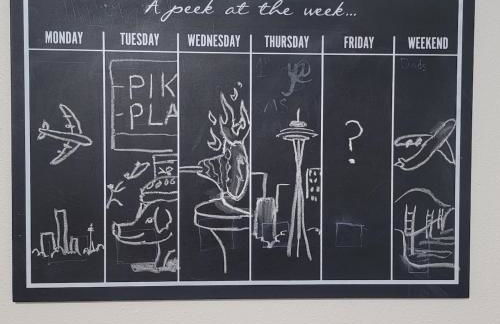 A peek at the week...
MONDAY TUESDAY WEDNESDAY THURSDAY FRIDAY WEEKEND
PIK
PLA
?